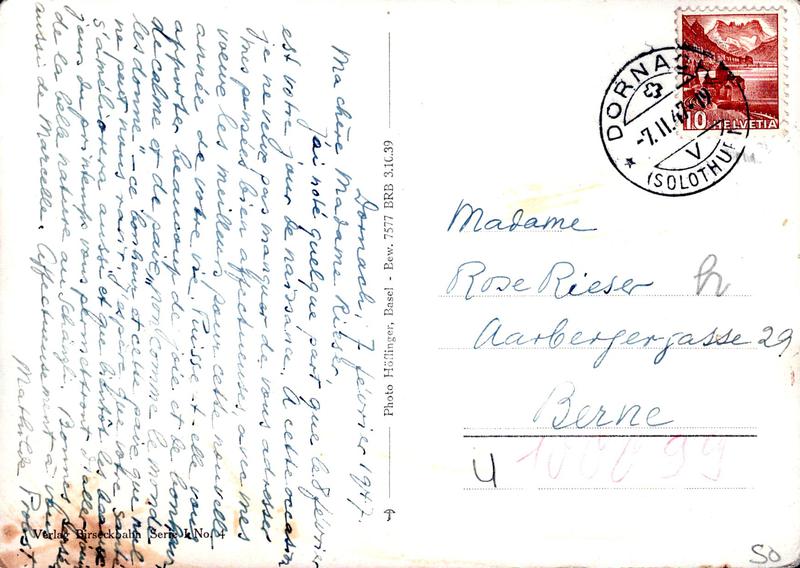 Dornach, 7 février 1947.
Ma chère Madame Rieser,
J'ai noté quelque part que le 8 février
est votre jour de naissance. A cette occasion
je ne veux pas manquer de vous adresser
mes pensées bien affectueuses, avec mes
voeux les meilleurs pour cette nouvelle
année de votre vie. Puisse-t-elle vous
apporter beaucoup de joie et de bonheur,
de calme et de paix, "non comme le monde
les donne" - ce bonheur et cette paix que nul
ne peut nous ravir. J'espère que votre santé
s'améliorera aussi et que bientôt les beaux
jours du printemps vous permettront d'aller jouir
de la belle nature au Schänzli. Bonnes pensées
aussi de Marcelle. Affectueusement à vous
Mathilde Probst.
Verlag Birseckbahn Serie k No. 4
Photo Höflinger, Basel - Bew. 7577 BRB 3.10.39
DORNACH
-7.II.47-19
V
(SOLOTHURN)
10 HELVETIA
Madame
Rose Rieser
Aarbergergasse 29
Berne
U
100099
SO